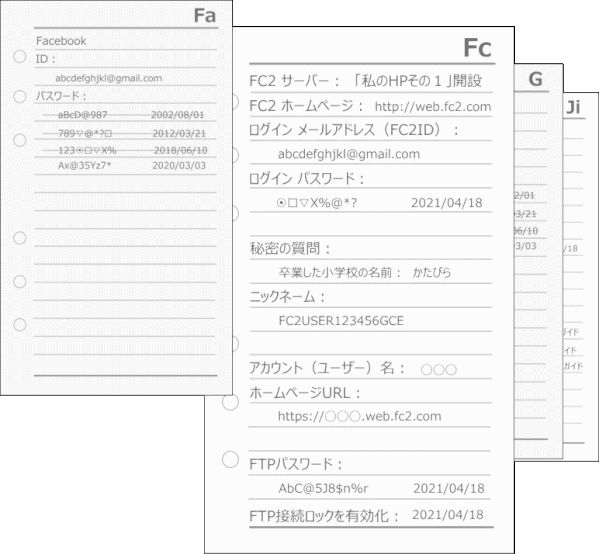 Fa
Facebook
ID：
abcdefghjkl@gmail.com
パスワード：
aBcD@987 2002/08/01
789▽@*?□ 2012/03/21
123☉□▽X% 2018/06/10
Ax@35Yz7* 2020/03/03
Fc
FC2 サーバー： 「私のHPその１」開設
FC2 ホームページ： http://web.fc2.com
ログイン メールアドレス（FC2ID）：
abcdefghjkl@gmail.com
ログイン パスワード：
☉□▽X%@*? 2021/04/18
秘密の質問：
卒業した小学校の名前： かたびら
ニックネーム：
FC2USER123456GCE
アカウント（ユーザー）名： ○○○
ホームページURL：
https://○○○.web.fc2.com
FTPパスワード：
AbC@5J8$n%r 2021/04/18
FTP接続ロックを有効化： 2021/04/18
G
2/01
3/21
6/10
3/03
Ji
/18
ガイド
ド
ガイド